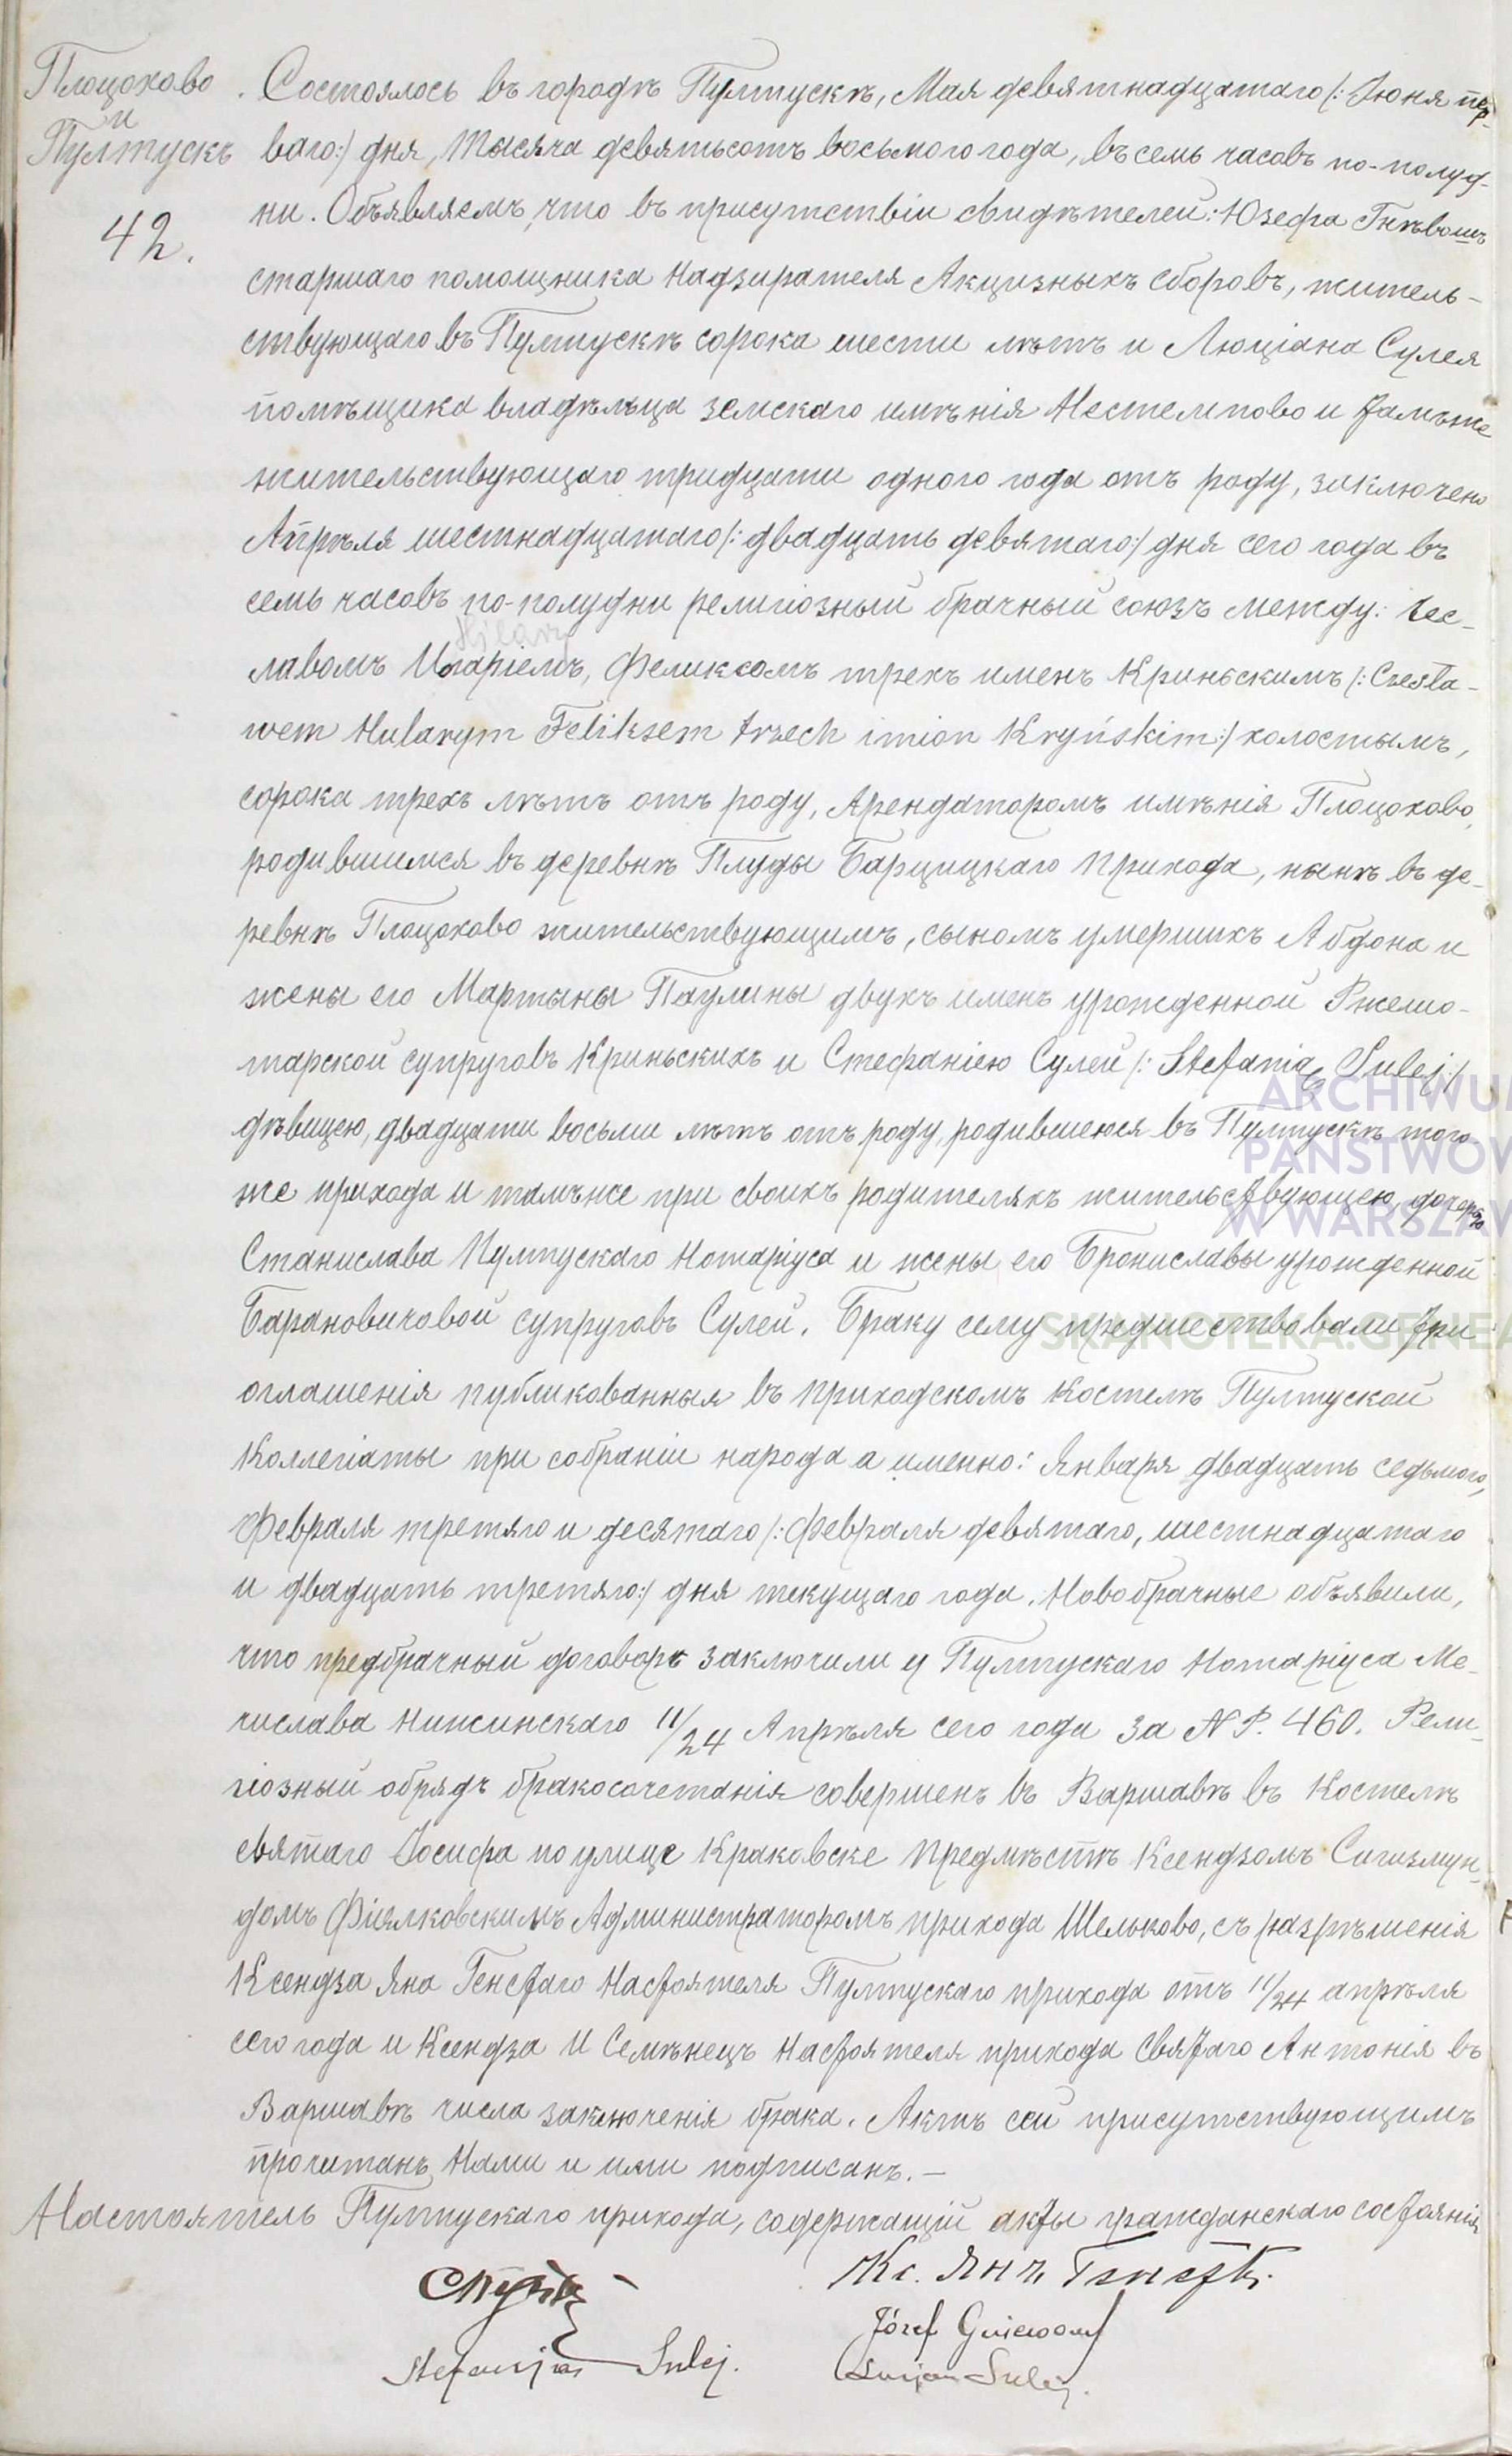 Плоцохово
и
Пултускъ
42.
Состоялось въ городѣ Пултускѣ, Мая девятнадцатаго /: Іюня пер-
ваго:/ дня, тысяча девятьсотъ восьмого года, въ семь часовъ по-полуд-
ни. Объявляемъ, что въ присутствіи свидѣтелей: Юзефа Гнѣвошъ
старшаго помощника Надзирателя Акцизныхъ сборовъ, житель-
ствующаго въ Пултускѣ сорока шести лѣтъ и Люціана Сулея
помѣщика владѣльца земскаго имѣнія Нестемпово и тамъже
жительствующаго тридцати одного года отъ роду, заключено
Апрѣля шестнадцатаго /: двадцать девятаго:/ дня сего года въ
семь часовъ по-полудни религіозный брачный союзъ между: Чес-
Hilary
лавомъ Иларіемъ, Феликсомъ трехъ именъ Криньскимъ /: Czesła-
wem Hularym Feliksem trzech imion Kryńskim:/ холостымъ,
сорока трехъ лѣтъ отъ роду, Арендаторомъ имѣнія Плоцохово,
родившимся въ деревнѣ Плуды Барцицкаго прихода, нынѣ въ де-
ревнѣ Плоцохово жительствующимъ, сыномъ умершихъ Абдона и
жены его Мартыны Паулины двухъ именъ урожденной Ржешо-
тарской супруговъ Криньскихъ и Стефаніею Сулей /: Stefanią Sulej:/
дѣвицею, двадцати восьми лѣтъ отъ роду, родившеюся въ Пултускѣ того
же прихода и тамъже при своихъ родителяхъ жительствующею, дочерью
Станислава Пултускаго Нотаріуса и жены его Брониславы урожденной
Барановичовой супруговъ Сулей. Браку сему предшествовали три
оглашенія публикованныя въ приходскомъ костелѣ Пултуской
Коллегіаты при собраніи народа а именно: Января двадцать седьмого,
Февраля третяго и десятаго /: Февраля девятаго, шестнадцатаго
и двадцать третяго:/ дня текущаго года. Новобрачные объявили,
что предбрачный договоръ заключили у Пултускаго Нотаріуса Ме-
числава Нижинскаго 11/24 Апрѣля сего года за N Р. 460. Рели-
гіозный обрядъ бракосочетанія совершенъ въ Варшавѣ въ Костелѣ
святаго Іосифа по улице Краковске Предмѣстѣ Ксендзомъ Сигизмун-
домъ Фіялковскимъ Администраторомъ прихода Шельково, съ разрѣшенія
Ксендза Яна Генстаго Настоятеля Пултускаго прихода отъ 11/24 апрѣля
сего года и Ксендза И Семѣнецъ Настоятеля прихода Святаго Антонія въ
Варшавѣ числа заключенія брака. Актъ сей присутствующимъ
прочитанъ, Нами и ими подписанъ. —
Настоятель Пултускаго прихода, содержащій акты гражданскаго состоянія
Кс. Янъ Генсты.
Józef Gniewosz
Stefanija Sulej.
Lucjan Sulej.
ARCHIWUM
PAŃSTWOW
W WARSZAW
SKANOTEKA.GENEA